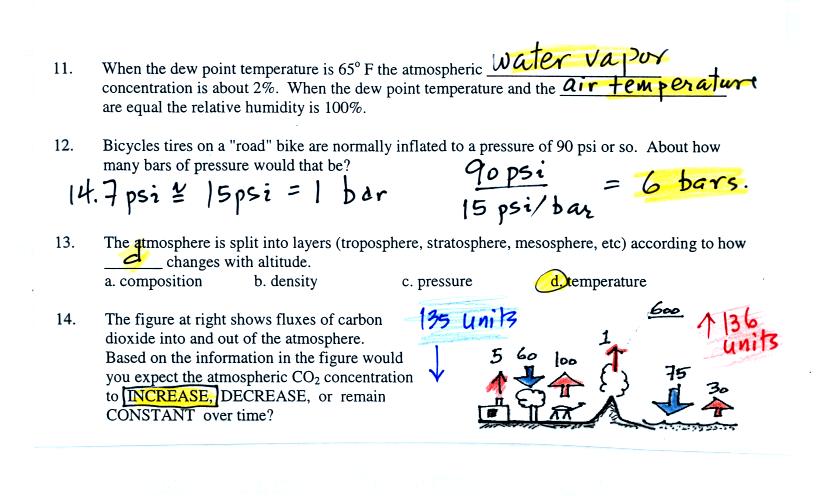 11. When the dew point temperature is 65° F the atmospheric water vapor
concentration is about 2%. When the dew point temperature and the air temperature
are equal the relative humidity is 100%.
12. Bicycles tires on a "road" bike are normally inflated to a pressure of 90 psi or so. About how
many bars of pressure would that be?
14.7 psi ≅ 15psi = 1 bar
90 psi
15 psi/bar
= 6 bars.
13. The atmosphere is split into layers (troposphere, stratosphere, mesosphere, etc) according to how
d changes with altitude.
a. composition b. density c. pressure d. temperature
14. The figure at right shows fluxes of carbon
dioxide into and out of the atmosphere.
Based on the information in the figure would
you expect the atmospheric CO₂ concentration
to INCREASE, DECREASE, or remain
CONSTANT over time?
135 units
↓
600
↑ 136
units
5 60 100 1 75 30